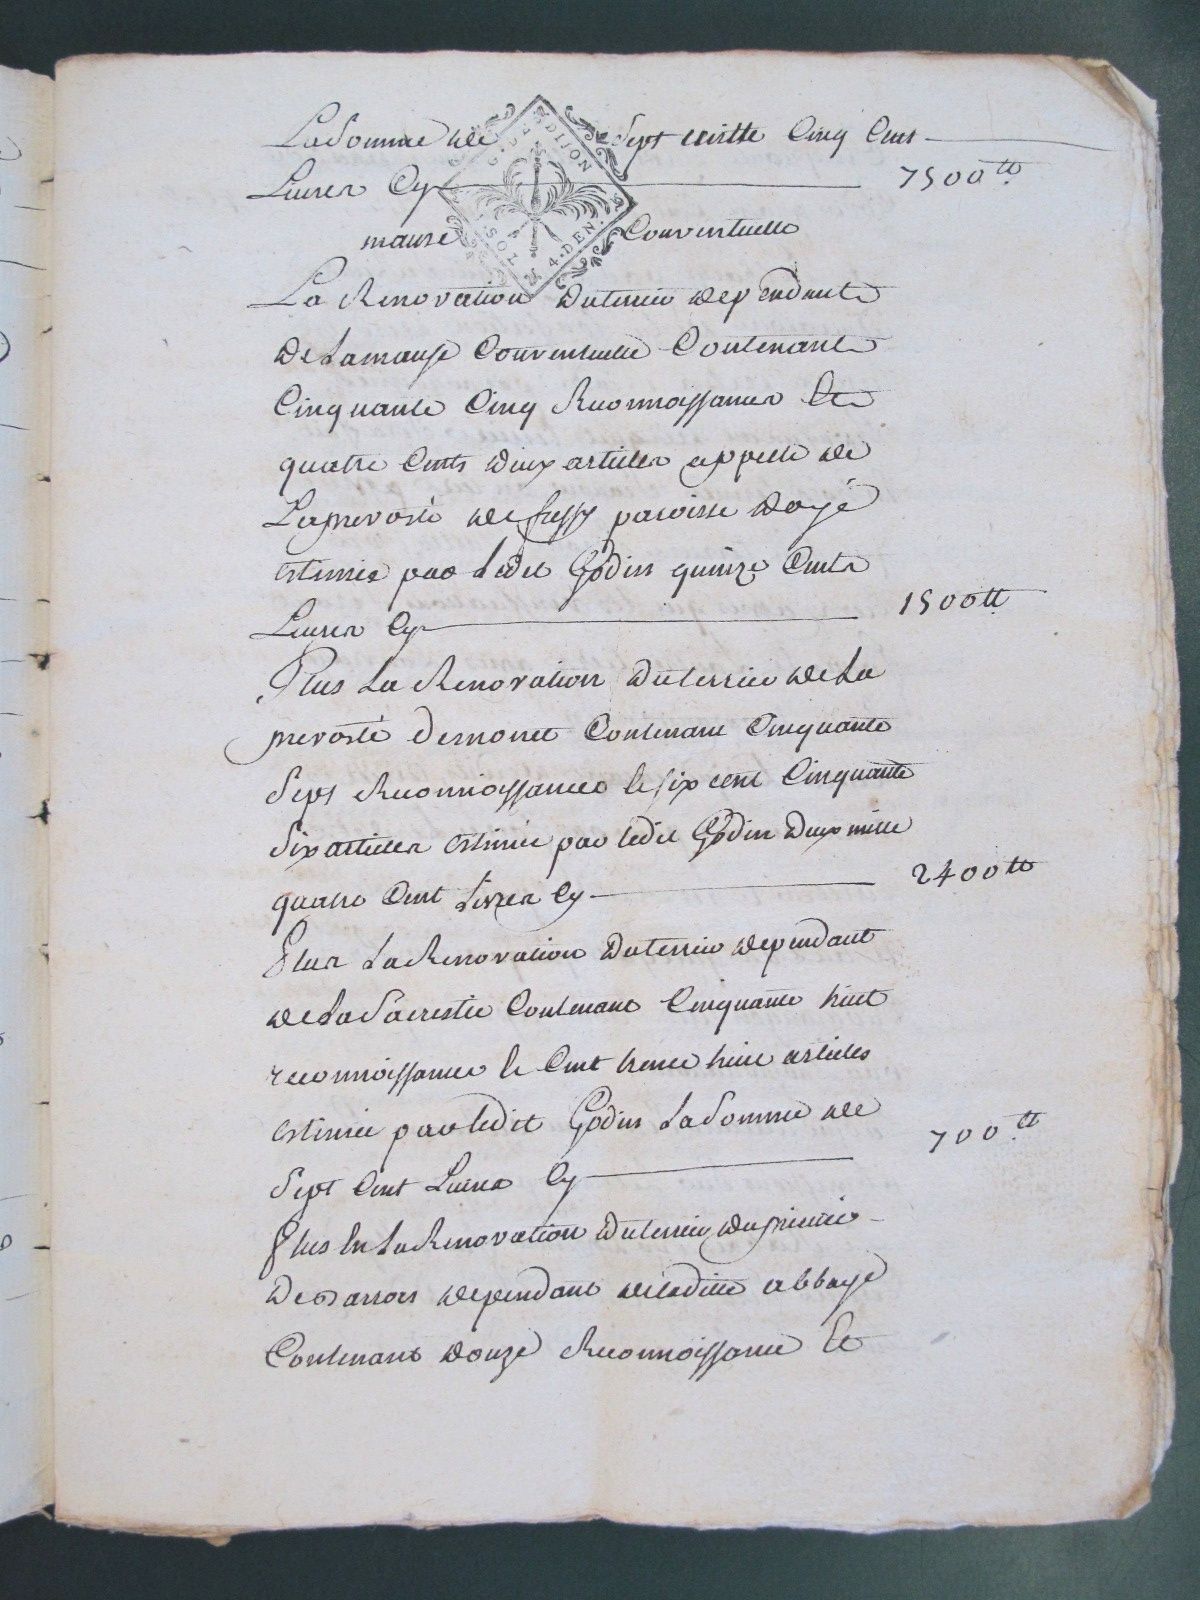 La Somme de Sept mille Cinq Cent
Livres Cy 7500tt
G. DE DIJON
2 SOL. 4. DEN.
manse Conventuelle
La Renovation du terrier dependante
De La manse Conventuelle Contenant
Cinquante Cinq Reconnoissances Et
quatre Cents deux articles appellé de
La prevosté de fussy paroisse doyé
estimée par Ledit Godin quinze Cents
Livres Cy 1500tt
Plus La Renovation du terrier de La
prevosté demonet Contenant Cinquante
Sept Reconnoissances le six cent Cinquante
Six articles estimée par ledit Godin deux mille
quatre Cent Livres Cy 2400tt
Plus La Renovation du terrier dependant
de La Sacrestie Contenant Cinquante huit
reconnoissances le Cent trente huit articles
estimée par ledit Godin La Somme de
Sept Cent Livres Cy 700tt
Plus En La Renovation du terrier du prieuré
De dependant de laditte abbaye
Contenant douze Reconnoissance Et